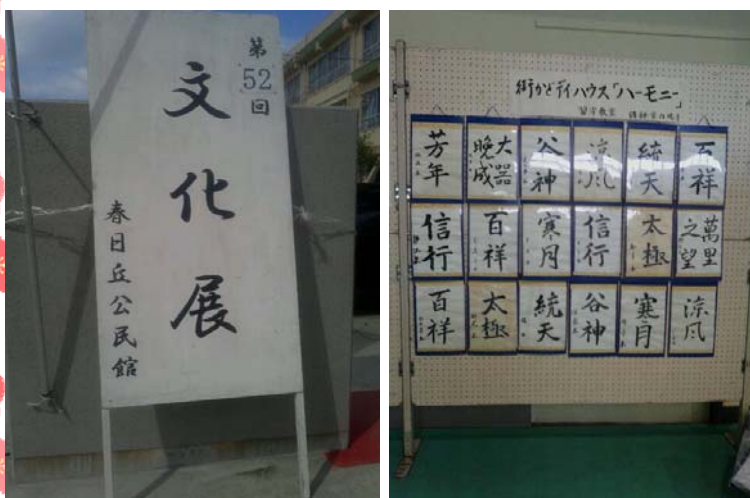 第52回
文化展
春日丘公民館
街かどデイハウス「ハーモニー」
習字教室
芳年
大器
晩成
谷神
涼風
統天
百祥
信行
百祥
寒月
信行
太極
萬里
之望
百祥
太極
統天
谷神
寒月
涼風